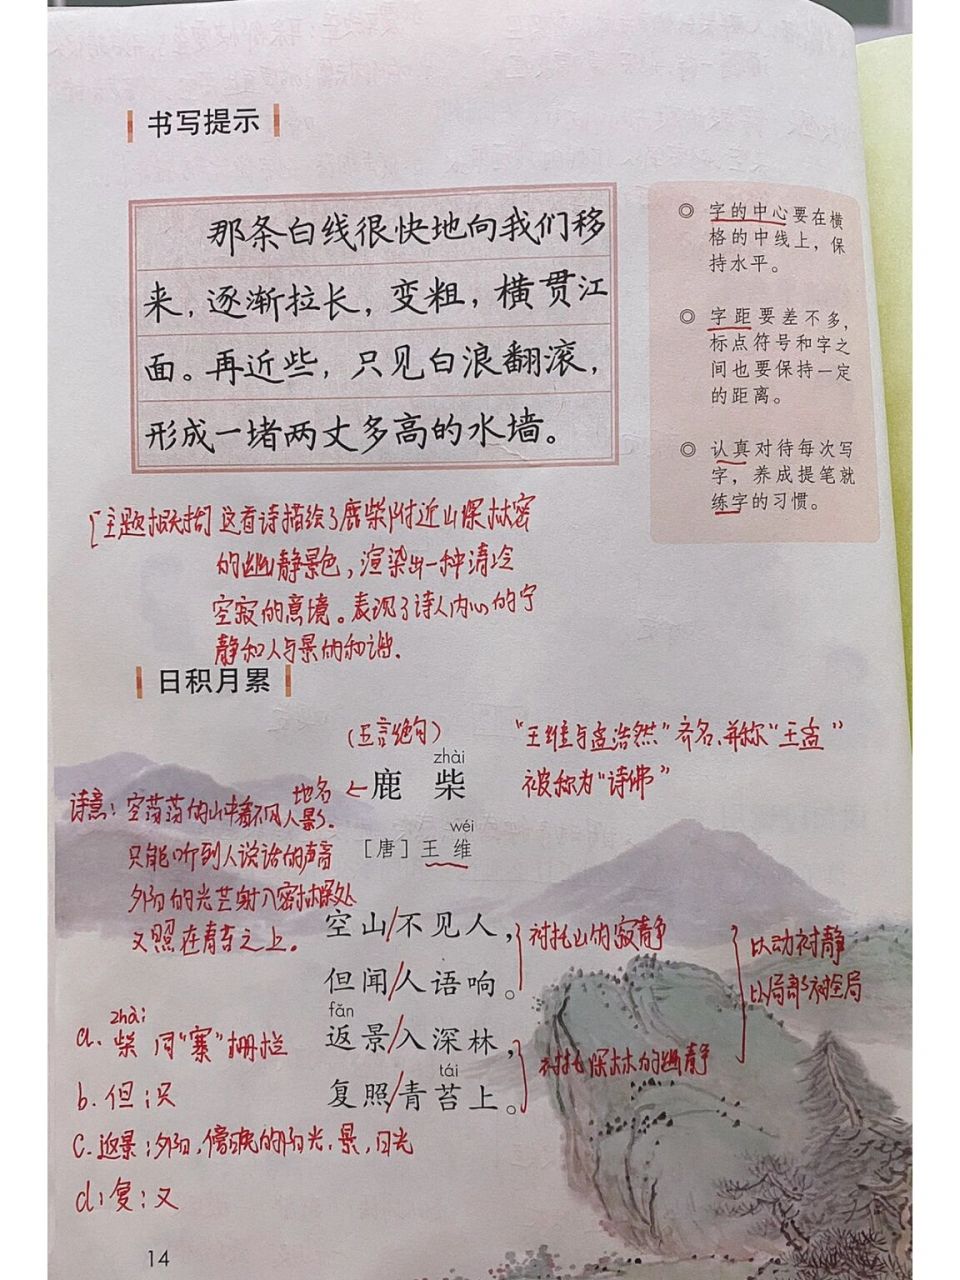 书写提示
那条白线很快地向我们移
来，逐渐拉长，变粗，横贯江
面。再近些，只见白浪翻滚，
形成一堵两丈多高的水墙。
◎ 字的中心要在横
格的中线上，保
持水平。
◎ 字距要差不多，
标点符号和字之
间也要保持一定
的距离。
◎ 认真对待每次写
字，养成提笔就
练字的习惯。
[主题概括] 这首诗描绘了鹿柴附近山深林密
的幽静景色，渲染出一种清冷
空寂的意境。表现了诗人内心的宁
静和人与景的和谐.
日积月累
(五言绝句)
"王维与孟浩然"齐名,并称"王孟"
被称为"诗佛"
zhài
地名←鹿柴
wéi
[唐] 王维
诗意：空荡荡的山中看不见人影.
只能听到人说话的声音
夕阳的光芒射入密林深处
又照在青苔之上。
空山/不见人，
但闻/人语响。
fǎn
返景/入深林，
tái
复照/青苔上。
衬托山的寂静
衬托深林的幽静
以动衬静
以局部衬全局
zhài
a. 柴 同"寨"栅栏
b. 但：只
c. 返景：夕阳,傍晚的阳光.景,日光
d：复：又
14